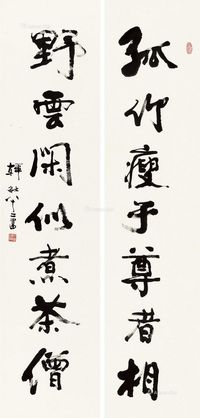 孤竹瘦于尊者相
野雲閑似煮茶僧
韓敏八十二書